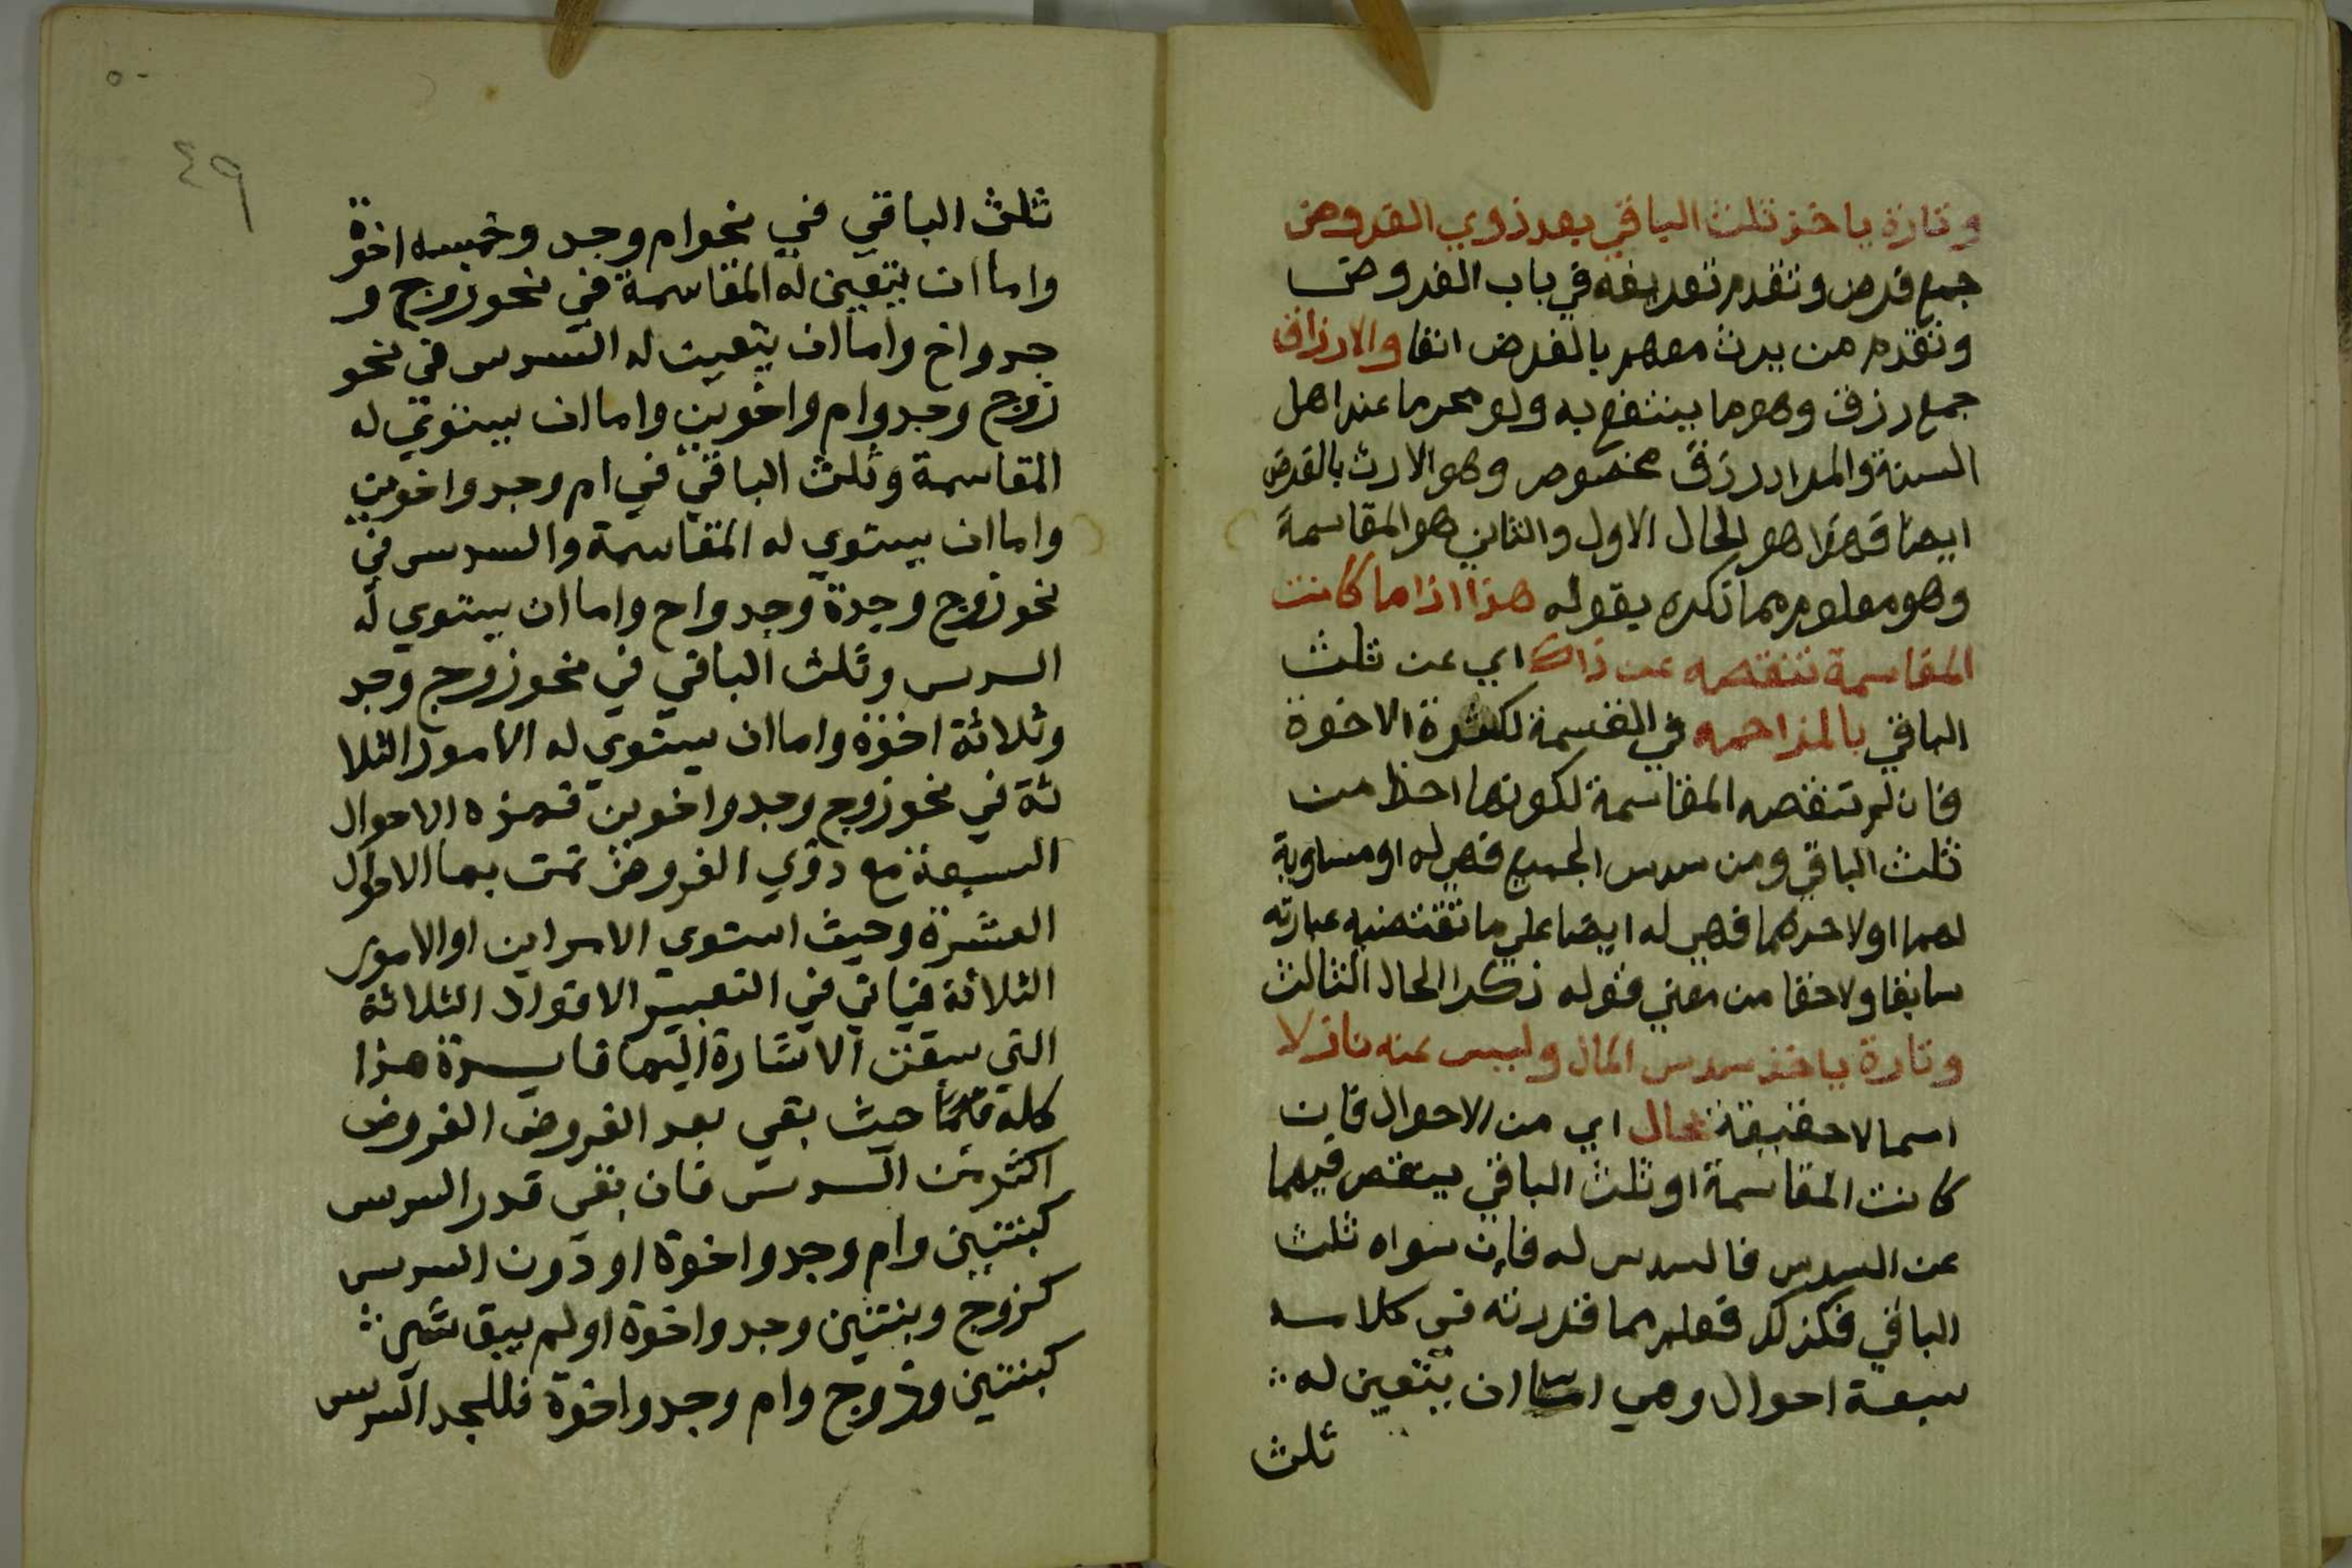 وتارة ياخذ ثلث الباقي بعد ذوي الفروض
جمع فرض وتقدم تعريفه في باب الفروض
وتقدم من يرث معهم بالفرض انفا والارزاق
جمع رزق وهو ما ينتفع به ولو محرما عند اهل
السنة والمراد رزق مخصوص وهو الارث بالفرض
ايضا فهذا هو الحال الاول والثاني هو المقاسمة
وهو معلوم مما ذكره بقوله هذا اذا ما كانت
المقاسمة تنقصه عن ذاك اي عن ثلث
الباقي بالمزاحمه في القسمة لكثرة الاخوة
فان لم تنقصه المقاسمة لكونها احظ من
ثلث الباقي ومن سدس الجميع فهي له او مساوية
لهما او لاحدهما فهي له ايضا علي ما تقتضيه عبارته
سابقا ولاحقا من معني قوله ذكر الحال الثالث
وتارة ياخذ سدس المال وليس عنه نازلا
اسما لا حقيقة بحال اي من الاحوال فان
كانت المقاسمة او ثلث الباقي ينقص فيهما
عن السدس فالسدس له فان سواه ثلث
الباقي فكذلك فعلم مما قررته في كلامه
سبعة احوال وهي اما ان يتعين له
ثلث
٥٠
٤٩
ثلث الباقي في نحو ام وجد وخمسه اخوة
واما ان يتعين له المقاسمة في نحو زوج و
جد واخ واما ان يتعين له السدس في نحو
زوج وجد وام واخوين واما ان يستوي له
المقاسمة وثلث الباقي في ام وجد واخوين
واما ان يستوي له المقاسمة والسدس في
نحو زوج وجدة وجد واخ واما ان يستوي له
السدس وثلث الباقي في نحو زوج وجد
وثلاثة اخوة واما ان يستوي له الامور الثلا
ثة في نحو زوج وجد واخوين فهذه الاحوال
السبعة مع ذوي الفروض تمت بها الاحوال
العشرة وحيث استوي الامراين او الامور
الثلاثة فياتي في التعبير الاقوال الثلاثة
التي سبقت الاشارة اليها فايدة هذا
كله حيث بقي بعد الفروض الفروض
اكثر من السدس فان بقي قدر السدس
كبنتين وام وجد واخوة او دون السدس
كزوج وبنتين وجد واخوة او لم يبق شي
كبنتين وزوج وام وجد واخوة فللجد السدس